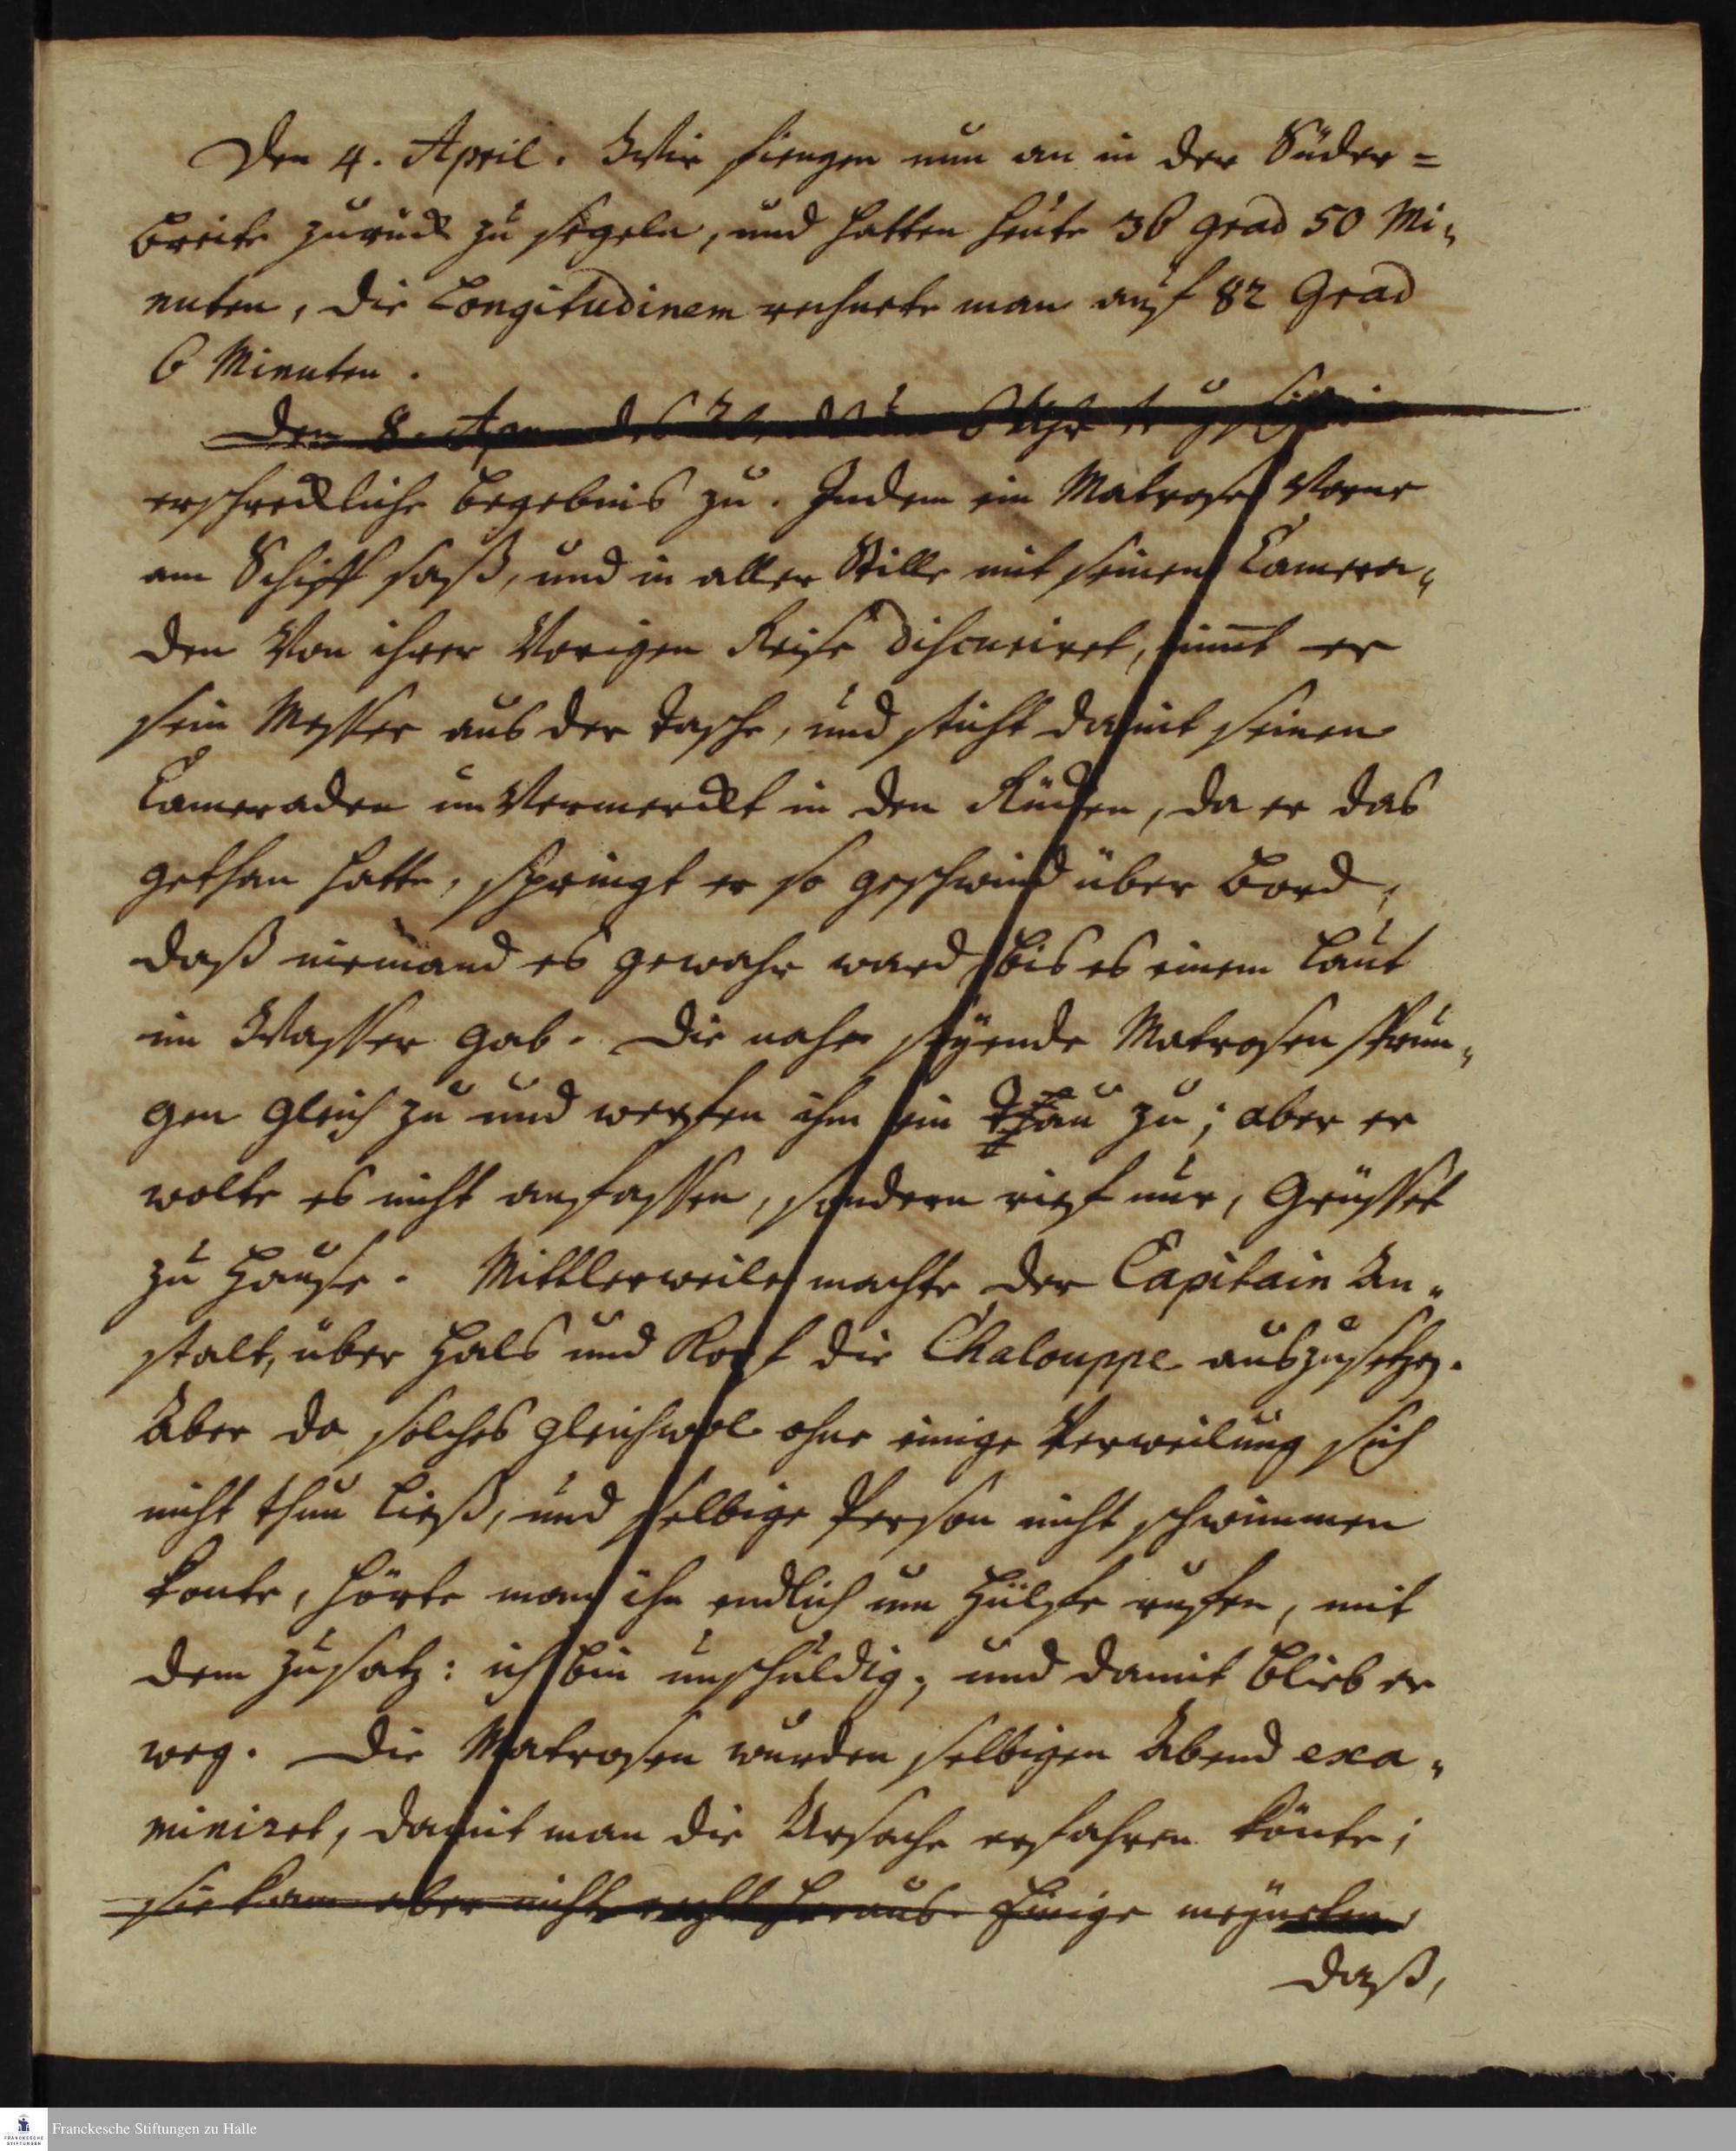 Den 4. April. Wir fiengen nun an in der Süder=
breite zurück zu segeln, und hatten heute 36 grad 50 Mi„
nuten, die Longitudinem rechnete man auf 82 Grad
6 Minuten.
Den 8. Apr des Abends um 6 Uhr trug sich eine
erschreckliche begebnis zu. Indem ein Matrose Vorne
am Schiff saß, und in aller Stille mit seinen Camera„
den Von ihrer Vorigen Reise discuriret, nim̄t er
sein Messer aus der tasche, und sticht damit seinen
Cameraden unVermerckt in den Rücken, da er das
gethan hatte, springt er so geschwind über bord,
daß niemand es gewahr ward, bis es einem Laut
im Wasser gab. Die nahe seyende Matrosen sprun„
gen gleich zu und werfen ihm ein Tau zu; aber er
wolte es nicht anfassen, sondern rief nur, Grüsset
zu Hause. Mittlerweile machte der Capitain An„
stalt, über Hals und Kopf die Chalouppe auszusetzen.
Aber da solches gleichwol ohne einige Verweilung sich
nicht thun ließ, und selbige Person nicht schwimmen
konte, hörte man ihn endlich um Hülfe rufen, mit
dem Zusatz: ich bin unschuldig; und damit blieb er
weg. Die Matrosen wurden selbigen Abend exa„
miniret, damit man die Ursache erfahren könte;
sie kam aber nicht recht heraus. Einige meyneten,
daß,
Franckesche Stiftungen zu Halle
FRANCKESCHE
STIFTUNGEN